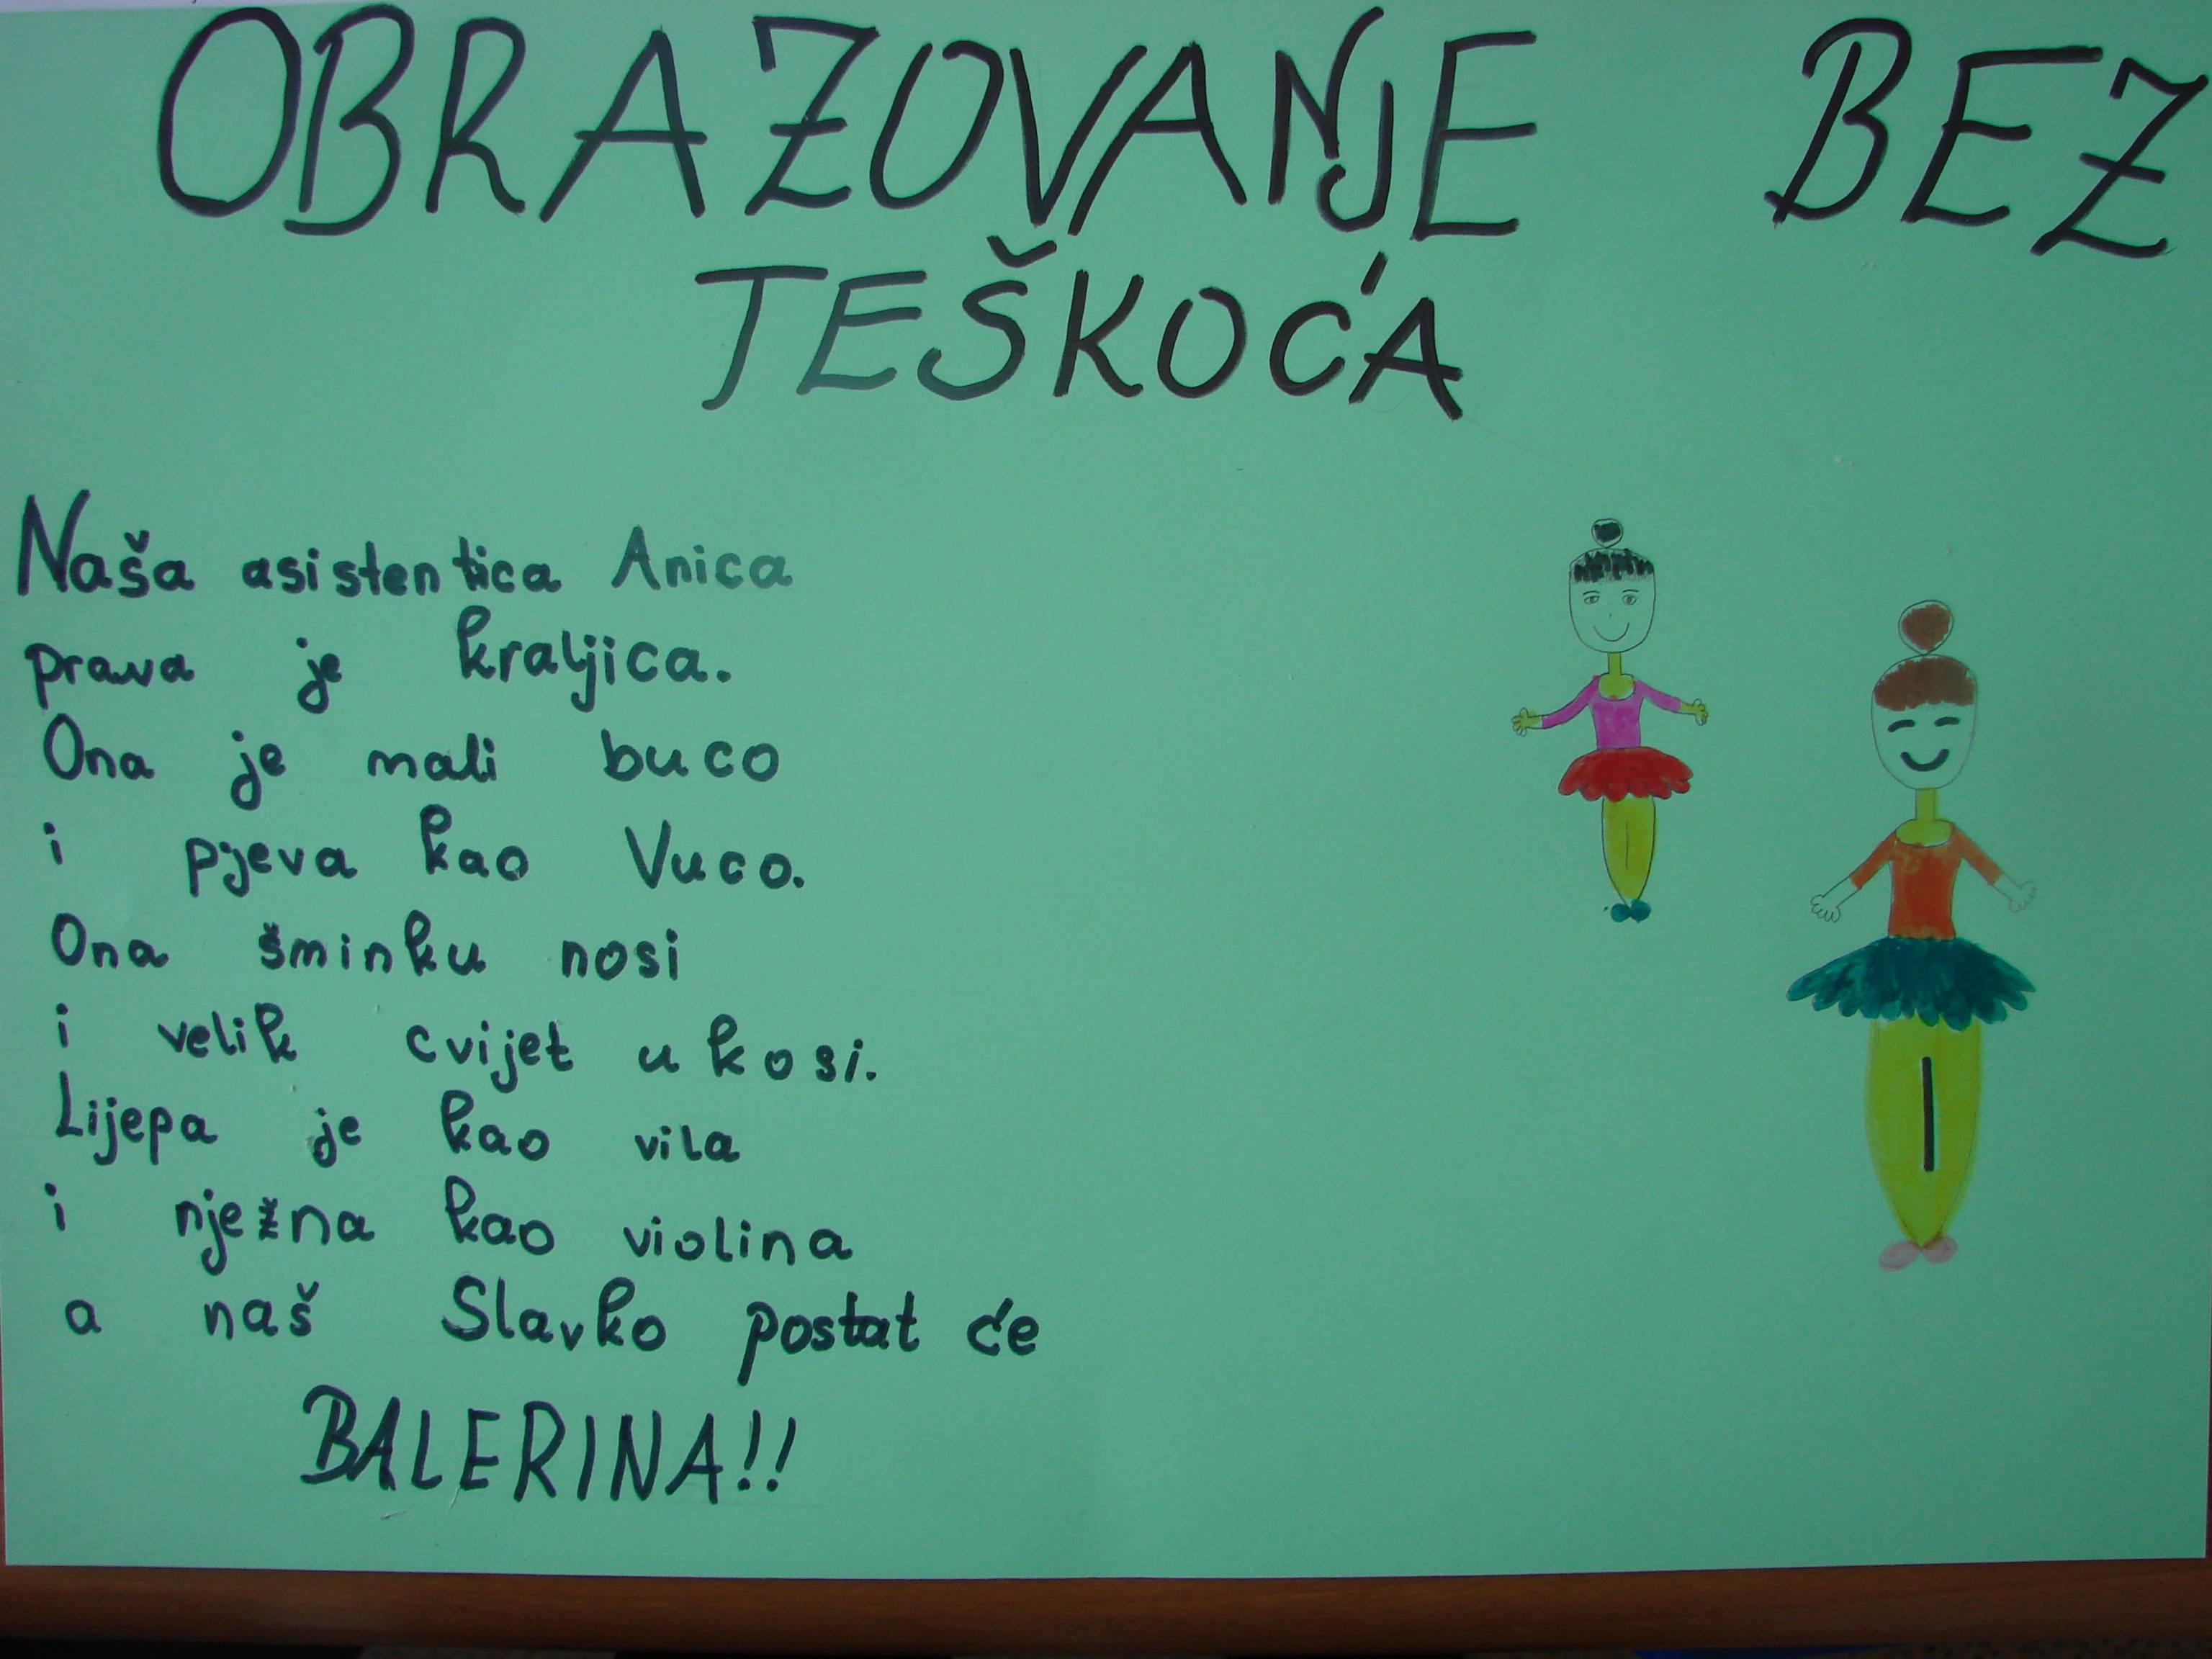 OBRAZOVANJE BEZ
TEŠKOĆA
Naša asistentica Anica
prava je kraljica.
Ona je mali buco
i pjeva kao Vuco.
Ona šminku nosi
i velik cvijet u kosi.
Lijepa je kao vila
i nježna kao violina
a naš Slavko postat će
BALERINA!!